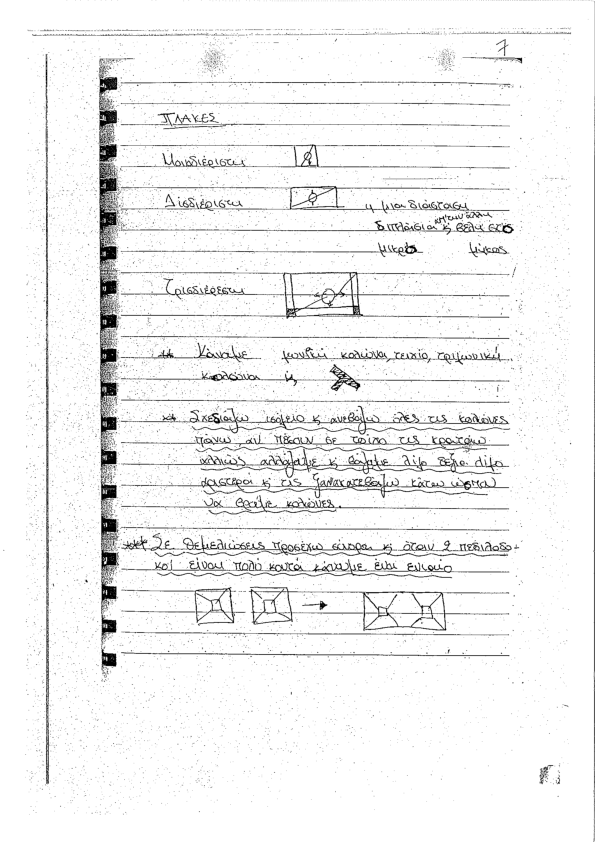 7
ΠΛΑΚΕΣ
Μοιαδιέριστη
Δισδιέριστη
ή μια διάσταση
απ' την άλλη
διπλάσια κ βελη στο
μικρο μήκος
Τρισδιέρεστη
** Κάναμε γωνιακή κολώνα, τειχίο, τριγωνική
κολώνα κ
** Σχεδιάζω ισόγειο κ ανεβάζω όλες τις κολώνες
πάνω, αν πέσουν σε τοίχο τις κρατάω
αλλιώς αλλάζουμε κ βάζουμε λίγο δεξιά λίγο
αριστερά κ τις ξανακατεβάζω κάτω ώσπου
να βρούμε κολώνες.
*** Σε θεμελιώσεις προσέχω σύνορα κ όταν 2 πεδιλοδο-
κοί είναι πολύ κοντά κάνουμε ένα ενιαίο